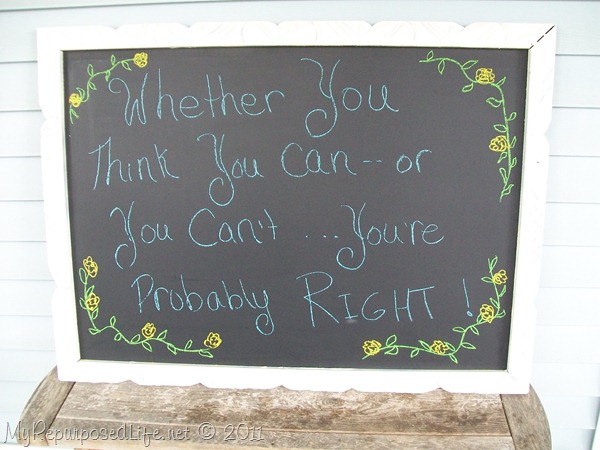 Whether You
Think You Can -- or
You Can't ... You're
Probably RIGHT !
MyRepurposedLife.net © 2011